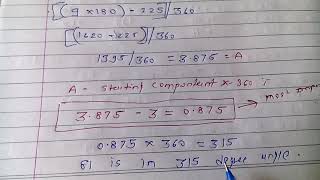 [(9 × 180) - 225]/360
[(1620 - 225)]/360
1395/360 = 3.875 = A
A - starting component × 360 T
3.875 - 3 = 0.875 → most
0.875 × 360 = 315
is in 315 degree